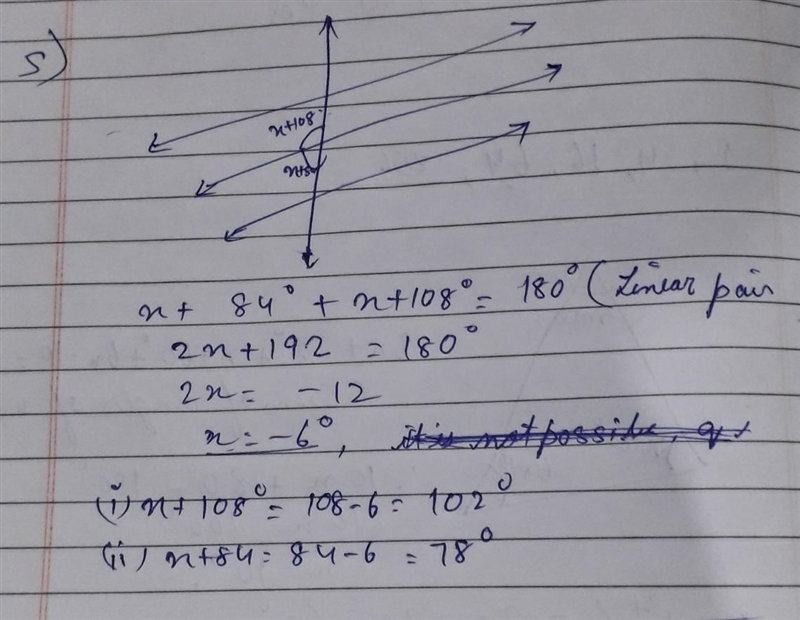 5)
x+108
x+84
x + 84° + x+108° = 180° (Linear pair
2x+192 = 180°
2x = -12
x = -6°, it is not possible,
(i) x+108° = 108-6 = 102°
(ii) x+84 = 84-6 = 78°